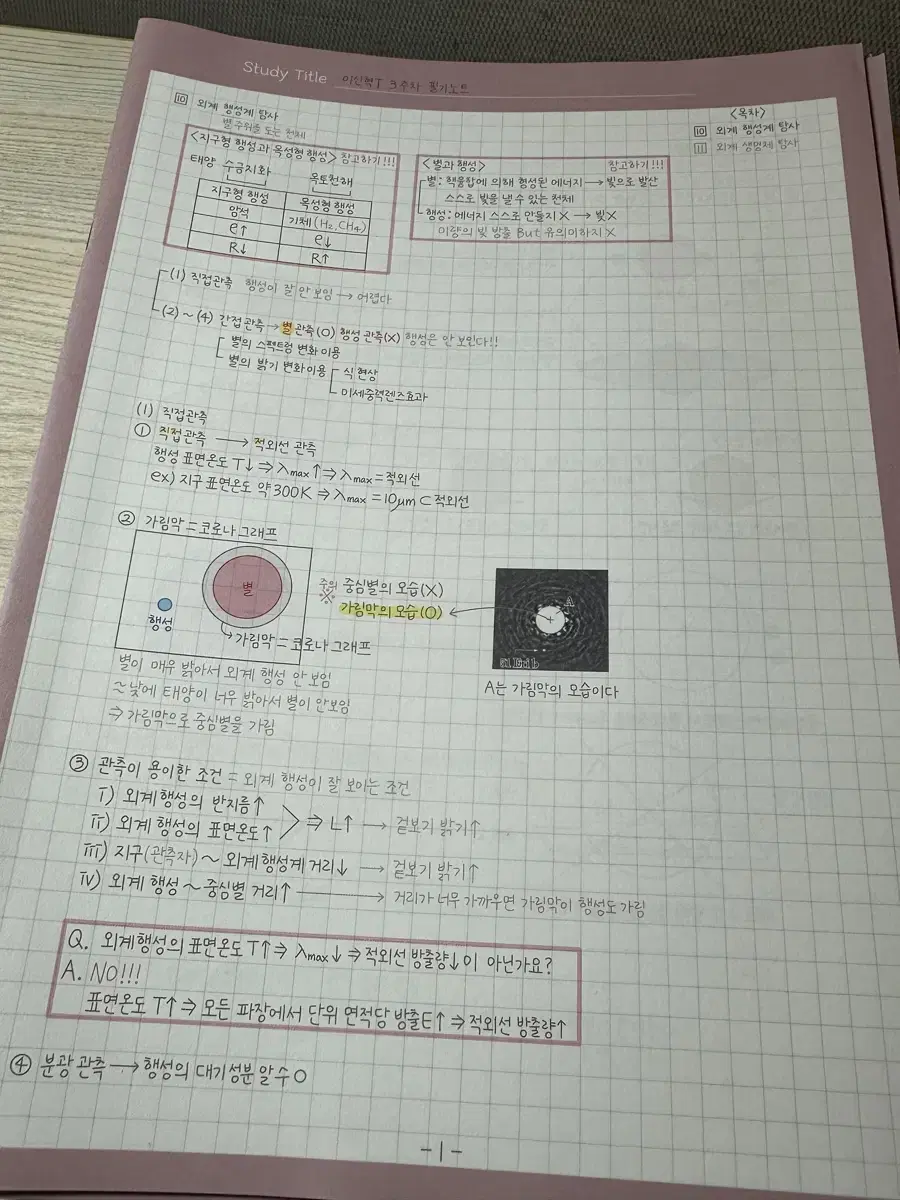 Study Title 이신혁T 3주차 필기노트
<목차>
10 외계 행성계 탐사
11 외계 생명체 탐사
10 외계 행성계 탐사
별 주위를 도는 천체
<지구형 행성과 목성형 행성> 참고하기!!!
태양 수금지화 목토천해
지구형 행성 목성형 행성
암석 기체(H₂, CH₄)
ρ↑ ρ↓
R↓ R↑
<별과 행성> 참고하기!!!
별: 핵융합에 의해 형성된 에너지 → 빛으로 발산
스스로 빛을 낼 수 있는 천체
행성: 에너지 스스로 만들지 X → 빛X
미량의 빛 방출 But 유의미하지 X
(1) 직접관측 행성이 잘 안 보임 → 어렵다
(2) ~ (4) 간접관측 → 별 관측(O) 행성 관측(X) 행성은 안 보인다!!
별의 스펙트럼 변화 이용
별의 밝기 변화 이용 식 현상
미세중력렌즈효과
(1) 직접관측
① 직접관측 → 적외선 관측
행성 표면온도 T↓ ⇒ λmax↑ ⇒ λmax = 적외선
ex) 지구 표면온도 약 300K ⇒ λmax = 10μm ⊂ 적외선
② 가림막 = 코로나 그래프
별
행성
가림막 = 코로나 그래프
주의 ※ 중심별의 모습(X)
가림막의 모습(O)
A
Eri b
A는 가림막의 모습이다
별이 매우 밝아서 외계 행성 안 보임
≈ 낮에 태양이 너무 밝아서 별이 안보임
⇒ 가림막으로 중심별을 가림
③ 관측이 용이한 조건 = 외계 행성이 잘 보이는 조건
i) 외계 행성의 반지름↑
ii) 외계 행성의 표면온도↑ ⇒ L↑ → 겉보기 밝기↑
iii) 지구(관측자) ~ 외계 행성계 거리↓ → 겉보기 밝기↑
iv) 외계 행성 ~ 중심별 거리↑ → 거리가 너무 가까우면 가림막이 행성도 가림
Q. 외계 행성의 표면온도 T↑ ⇒ λmax↓ ⇒ 적외선 방출량↓이 아닌가요?
A. NO!!!
표면온도 T↑ ⇒ 모든 파장에서 단위 면적당 방출E↑ ⇒ 적외선 방출량↑
④ 분광 관측 → 행성의 대기 성분 알 수 O
-1-